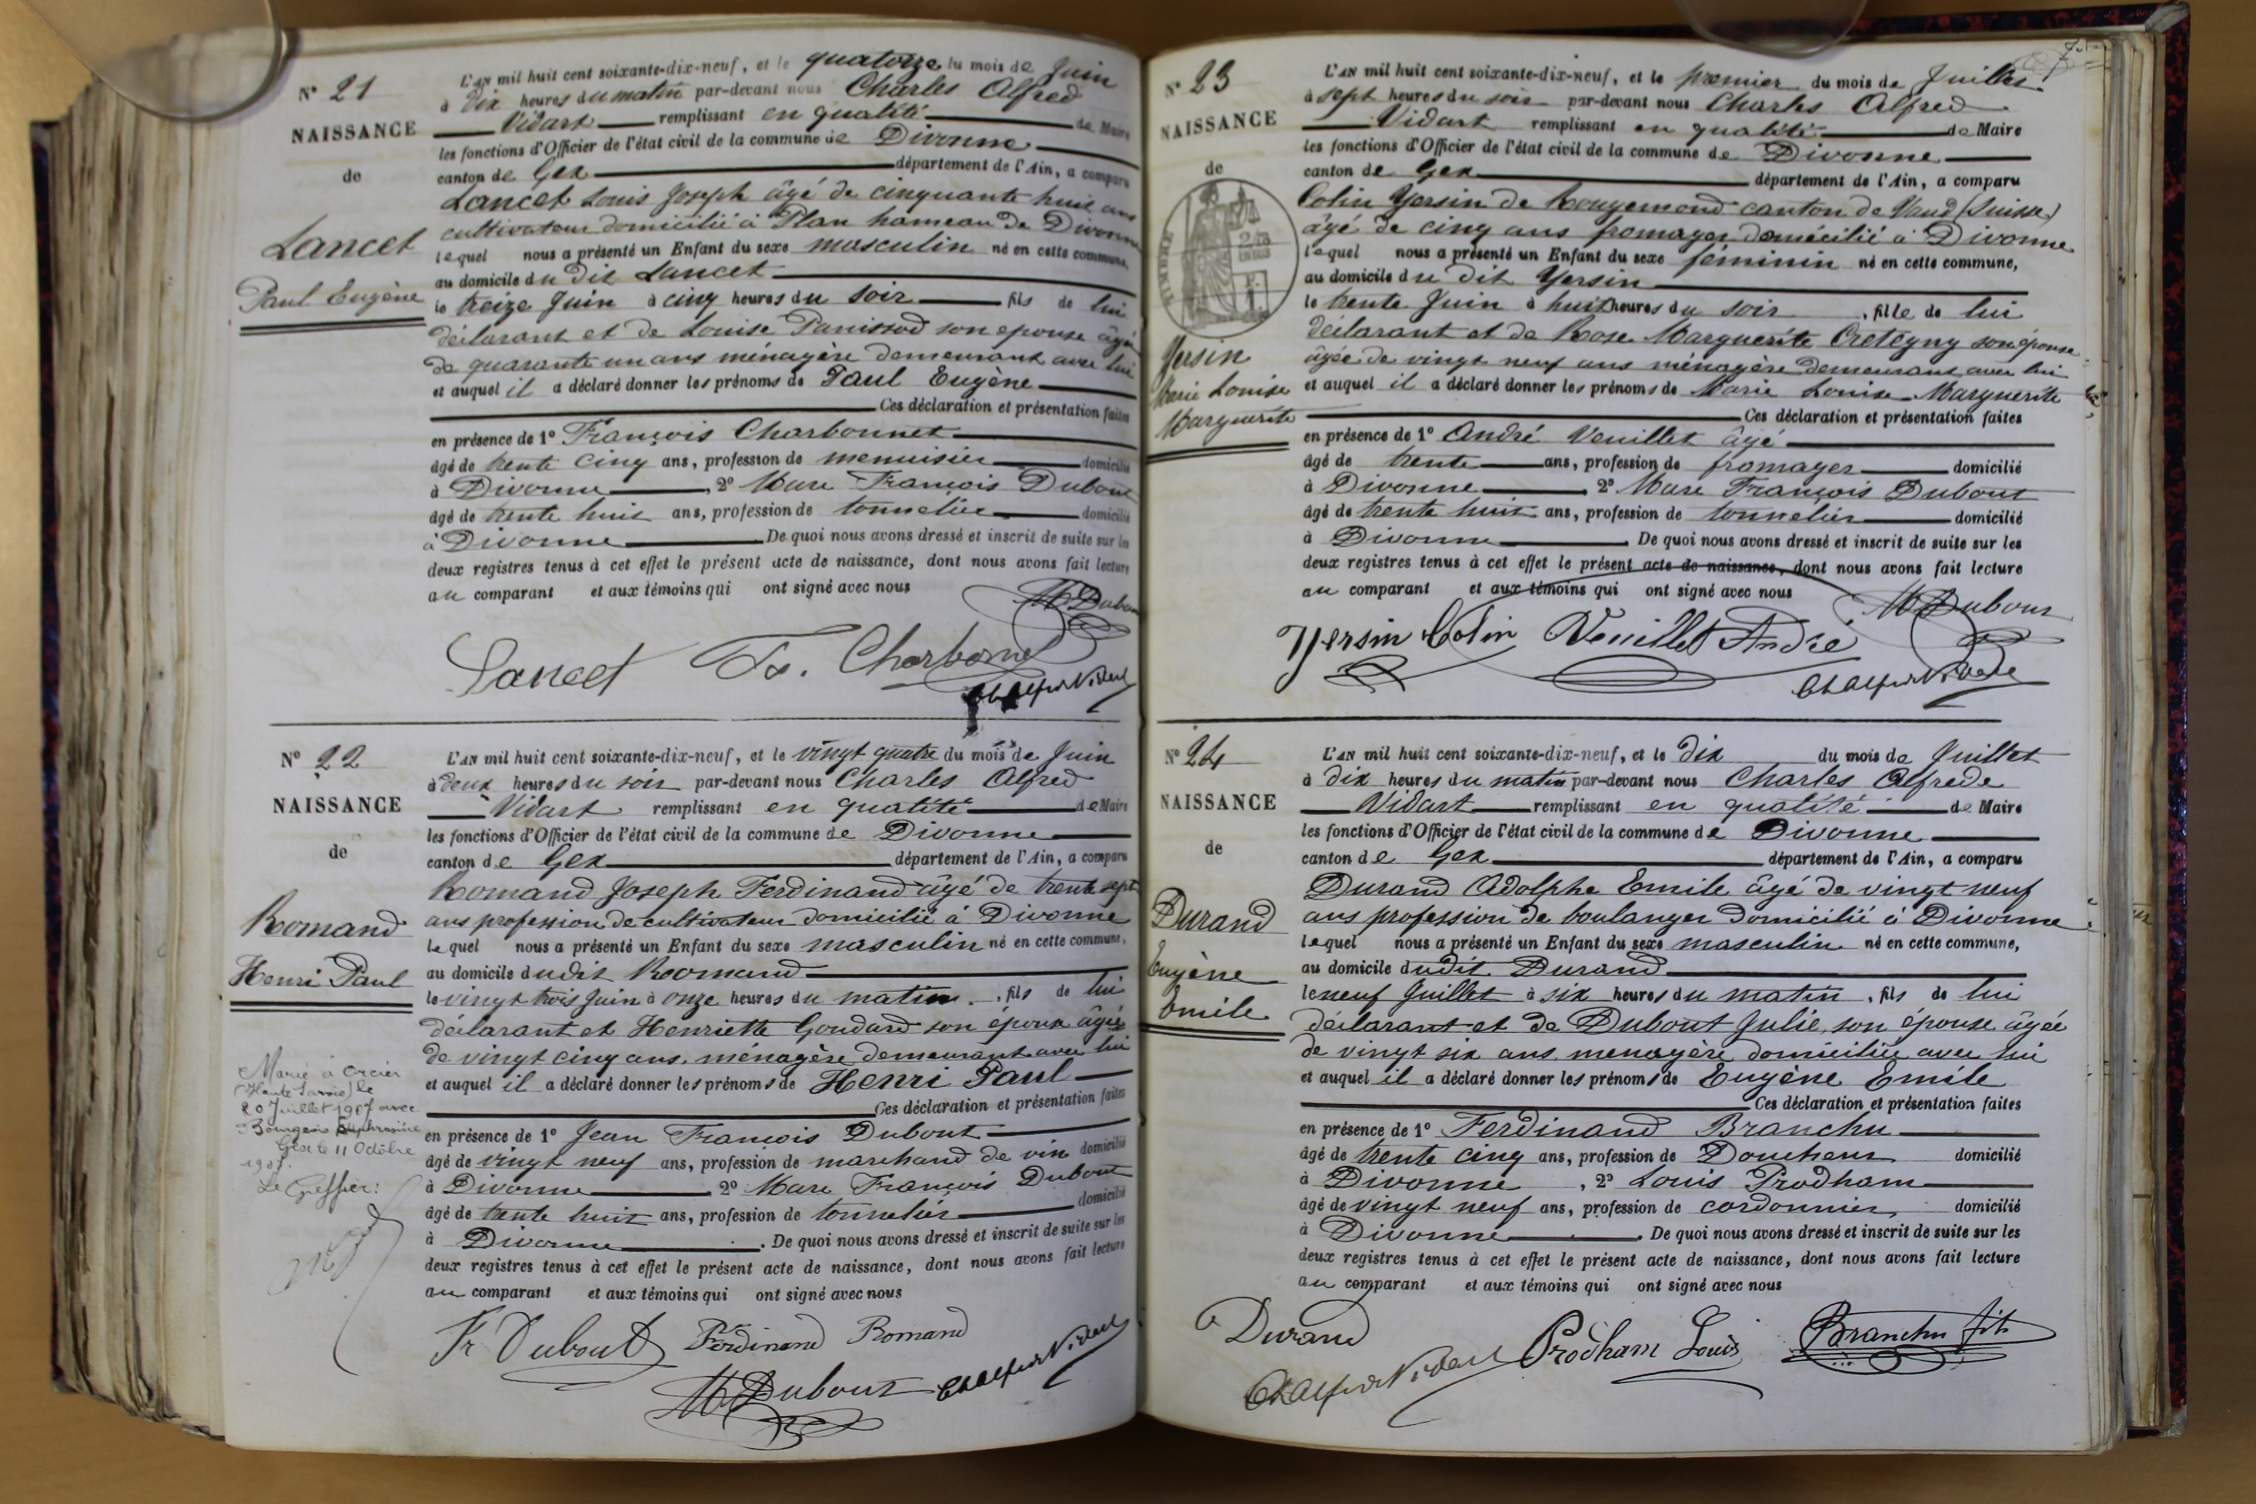 N° 21
NAISSANCE
de
Lancet
Paul Eugène
L'AN mil huit cent soixante-dix-neuf, et le quatorze du mois de Juin
à dix heures du matin par-devant nous Charles Alfred
Vidart remplissant en qualité de Maire
les fonctions d'Officier de l'état civil de la commune de Divonne
canton de Gex département de l'Ain, a comparu
Lancet Louis Joseph âgé de cinquante huit ans
cultivateur domicilié à Plan hameau de Divonne
lequel nous a présenté un Enfant du sexe masculin né en cette commune,
au domicile du dit Lancet
le treize Juin à cinq heures du soir fils de lui
déclarant et de Louise Panissod son epouse âgée
de quarante un ans ménagère demeurant avec lui
et auquel il a déclaré donner les prénoms de Paul Eugène
Ces déclaration et présentation faites
en présence de 1° François Charbonnet
âgé de trente cinq ans, profession de menuisier domicilié
à Divonne, 2° Marc François Dubout
âgé de trente huit ans, profession de tonnelier domicilié
à Divonne De quoi nous avons dressé et inscrit de suite sur les
deux registres tenus à cet effet le présent acte de naissance, dont nous avons fait lecture
au comparant et aux témoins qui ont signé avec nous
M Dubout
Lancet Fs. Charbonnet
Ch Alfred Vidart
N° 22
NAISSANCE
de
Romand
Henri Paul
Marié à Orcier
(Haute Savoie) le
20 Juillet 1907 avec
Bourgeois Euphrosine
Gex le 11 Octobre
1907.
Le Greffier:
L'AN mil huit cent soixante-dix-neuf, et le vingt quatre du mois de Juin
à deux heures du soir par-devant nous Charles Alfred
Vidart remplissant en qualité de Maire
les fonctions d'Officier de l'état civil de la commune de Divonne
canton de Gex département de l'Ain, a comparu
Romand Joseph Ferdinand âgé de trente sept
ans profession de cultivateur domicilié à Divonne
lequel nous a présenté un Enfant du sexe masculin né en cette commune,
au domicile dudit Romand
le vingt trois Juin à onze heures du matin, fils de lui
déclarant et Henriette Goudard son épouse âgée
de vingt cinq ans, ménagère demeurant avec lui
et auquel il a déclaré donner les prénoms de Henri Paul
Ces déclaration et présentation faites
en présence de 1° Jean François Dubout
âgé de vingt neuf ans, profession de marchand de vin domicilié
à Divonne 2° Marc François Dubout
âgé de trente huit ans, profession de tonnelier domicilié
à Divonne. De quoi nous avons dressé et inscrit de suite sur les
deux registres tenus à cet effet le présent acte de naissance, dont nous avons fait lecture
au comparant et aux témoins qui ont signé avec nous
Fr Dubout Ferdinand Romand
M Dubout Ch Alfred Vidart
N° 23
NAISSANCE
de
TIMBRE
Yersin
Marie Louise
Marguerite
L'AN mil huit cent soixante-dix-neuf, et le premier du mois de Juillet
à sept heures du soir par-devant nous Charles Alfred
Vidart remplissant en qualité de Maire
les fonctions d'Officier de l'état civil de la commune de Divonne
canton de Gex département de l'Ain, a comparu
Colin Yersin de Rougemond canton de Vaud (Suisse)
âgé de cinq ans fromager domicilié à Divonne
lequel nous a présenté un Enfant du sexe féminin né en cette commune,
au domicile du dit Yersin
le trente Juin à huit heures du soir, fille de lui
déclarant et de Rose Marguerite Cretegny son épouse
âgée de vingt neuf ans ménagère demeurant avec lui
et auquel il a déclaré donner les prénoms de Marie Louise Marguerite
Ces déclaration et présentation faites
en présence de 1° André Veuillet âgé
âgé de trente ans, profession de fromager domicilié
à Divonne, 2° Marc François Dubout
âgé de trente huit ans, profession de tonnelier domicilié
à Divonne. De quoi nous avons dressé et inscrit de suite sur les
deux registres tenus à cet effet le présent acte de naissance, dont nous avons fait lecture
au comparant et aux témoins qui ont signé avec nous
M Dubout
Yersin Colin Veuillet André
Ch Alfred Vidart
N° 24
NAISSANCE
de
Durand
Eugène
Emile
L'AN mil huit cent soixante-dix-neuf, et le dix du mois de Juillet
à dix heures du matin par-devant nous Charles Alfrede
Vidart remplissant en qualité de Maire
les fonctions d'Officier de l'état civil de la commune de Divonne
canton de Gex département de l'Ain, a comparu
Durand Adolphe Emile âgé de vingt neuf
ans profession de boulanger domicilié à Divonne
lequel nous a présenté un Enfant du sexe masculin né en cette commune,
au domicile dudit Durand
le neuf Juillet à six heures du matin, fils de lui
déclarant et de Dubout Julie, son épouse âgée
de vingt six ans menagère domiciliée avec lui
et auquel il a déclaré donner les prénoms de Eugène Emile
Ces déclaration et présentation faites
en présence de 1° Ferdinand Branchu
âgé de trente cinq ans, profession de Doucheur domicilié
à Divonne, 2° Louis Prodham
âgé de vingt neuf ans, profession de cordonnier, domicilié
à Divonne. De quoi nous avons dressé et inscrit de suite sur les
deux registres tenus à cet effet le présent acte de naissance, dont nous avons fait lecture
au comparant et aux témoins qui ont signé avec nous
Durand
Ch Alfred Vidart Prodham Louis Branchu fils